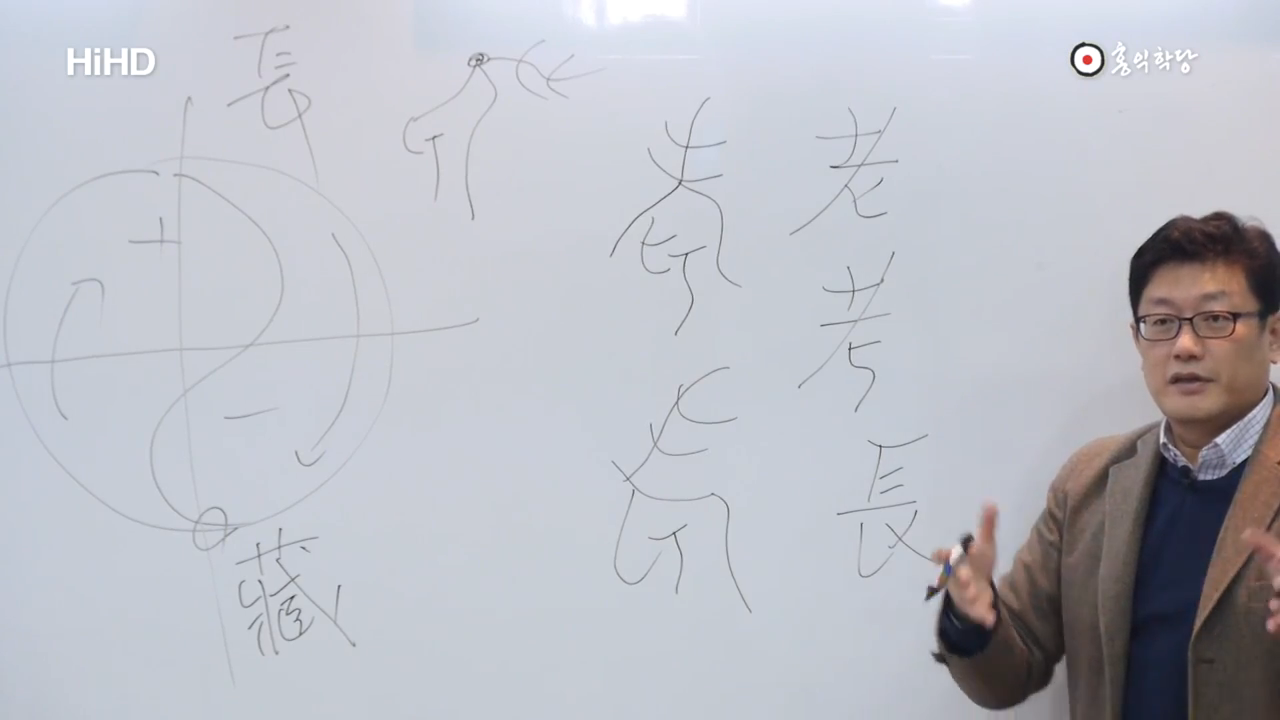 HiHD
홍익학당
長
老
考
長
+
-
藏